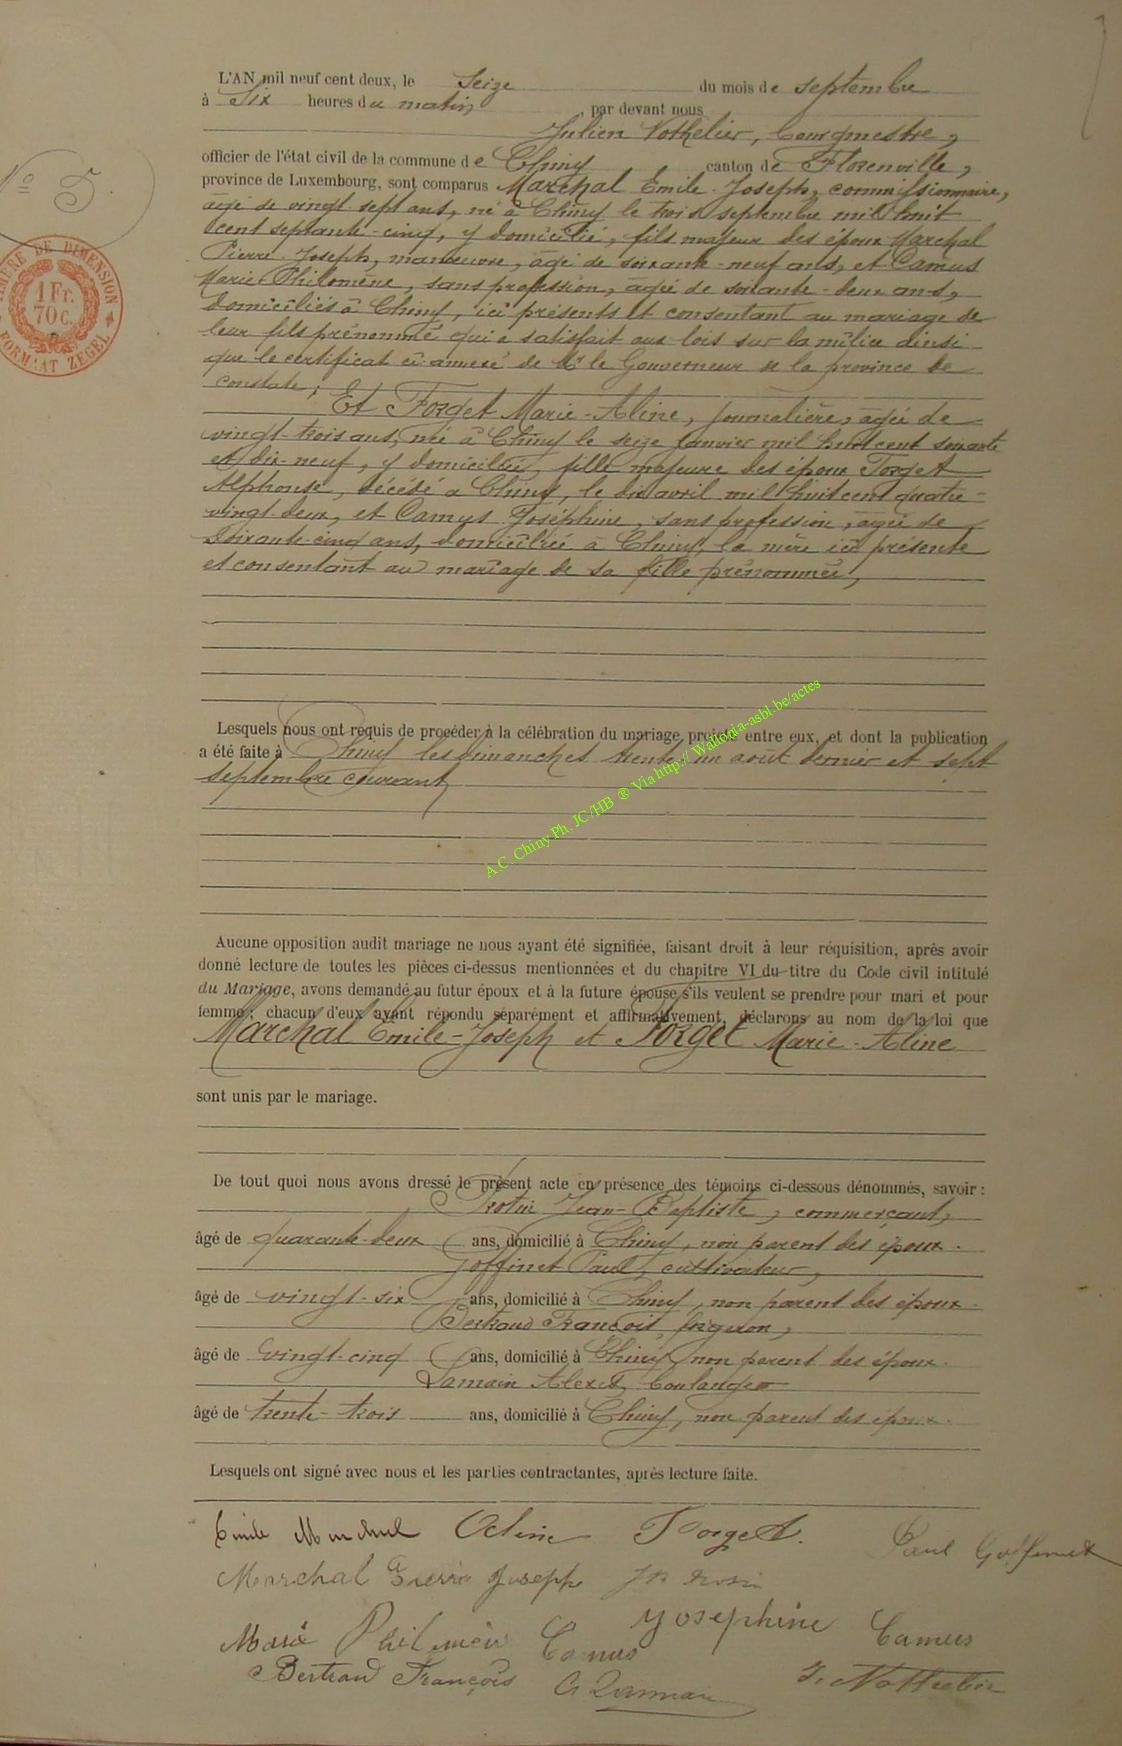 L'AN mil neuf cent deux, le Seize du mois de septembre
à Six heures du matin, par devant nous
Julien Nothelier, bourgmestre,
officier de l'état civil de la commune de Chiny canton de Florenville,
province de Luxembourg, sont comparus Marchal Emile-Joseph, commissionnaire,
âgé de vingt-sept ans, né à Chiny le trois septembre mil huit
cent septante-cinq, y domicilié, fils majeur des époux Marchal
Pierre-Joseph, manoeuvre, âgé de soixante-neuf ans, et Camus
Marie-Philomène, sans profession, âgée de soixante-deux ans,
domiciliés à Chiny, ici présents et consentant au mariage de
leur fils prénommé qui a satisfait aux lois sur la milice ainsi
que le certificat ci-annexé de Mr le Gouverneur de la province le
constate;
Et Forget Marie-Aline, journalière, âgée de
vingt-trois ans, née à Chiny le seize janvier mil huit cent soixante
et dix-neuf, y domiciliée, fille majeure des époux Forget
Alphonse, décédé à Chiny, le dix avril mil huit cent quatre-
vingt-deux, et Camus Joséphine, sans profession, âgée de
soixante-cinq ans, domiciliée à Chiny, la mère ici présente
et consentant au mariage de sa fille prénommée,
Lesquels nous ont requis de procéder à la célébration du mariage projeté entre eux, et dont la publication
a été faite à Chiny les dimanches trente un août dernier et sept
septembre courant,
Aucune opposition audit mariage ne nous ayant été signifiée, faisant droit à leur réquisition, après avoir
donné lecture de toutes les pièces ci-dessus mentionnées et du chapitre VI du titre du Code civil intitulé
du Mariage, avons demandé au futur époux et à la future épouse s'ils veulent se prendre pour mari et pour
femme; chacun d'eux ayant répondu séparément et affirmativement, déclarons au nom de la loi que
Marchal Emile-Joseph et Forget Marie-Aline
sont unis par le mariage.
De tout quoi nous avons dressé le présent acte en présence des témoins ci-dessous dénommés, savoir :
Jean-Baptiste, commerçant,
âgé de quarante-deux ans, domicilié à Chiny, non parent des époux.
Goffinet Paul, cultivateur,
âgé de vingt-six ans, domicilié à Chiny, non parent des époux.
Bertrand François, forgeron,
âgé de vingt-cinq ans, domicilié à Chiny, non parent des époux.
Lamain Alexis, boulanger
âgé de trente-trois ans, domicilié à Chiny, non parent des époux.
Lesquels ont signé avec nous et les parties contractantes, après lecture faite.
Emile Marchal Aline Forget. Paul Goffinet
Marchal Pierre Joseph
Marie Philomène Camus Yosephine Camus
Bertrand François J. Nothelier
No 5
TIMBRE DE DIMENSION
1 Fr.
70 C.
FORMAAT ZEGEL
A.C. Chiny Ph. JC/HB ® Via http:// Wallonia-asbl.be/actes